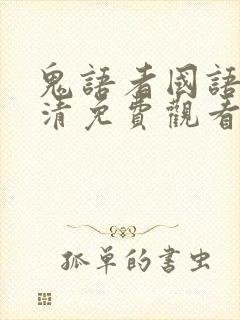 鬼語者國語
清免費觀看
孤單的書虫